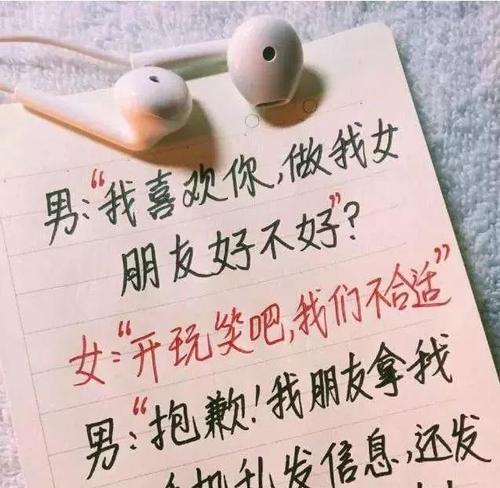 男:“我喜欢你,做我女
朋友好不好”?
女:“开玩笑吧,我们不合适”
男:“抱歉!我朋友拿我
手机乱发信息,还发